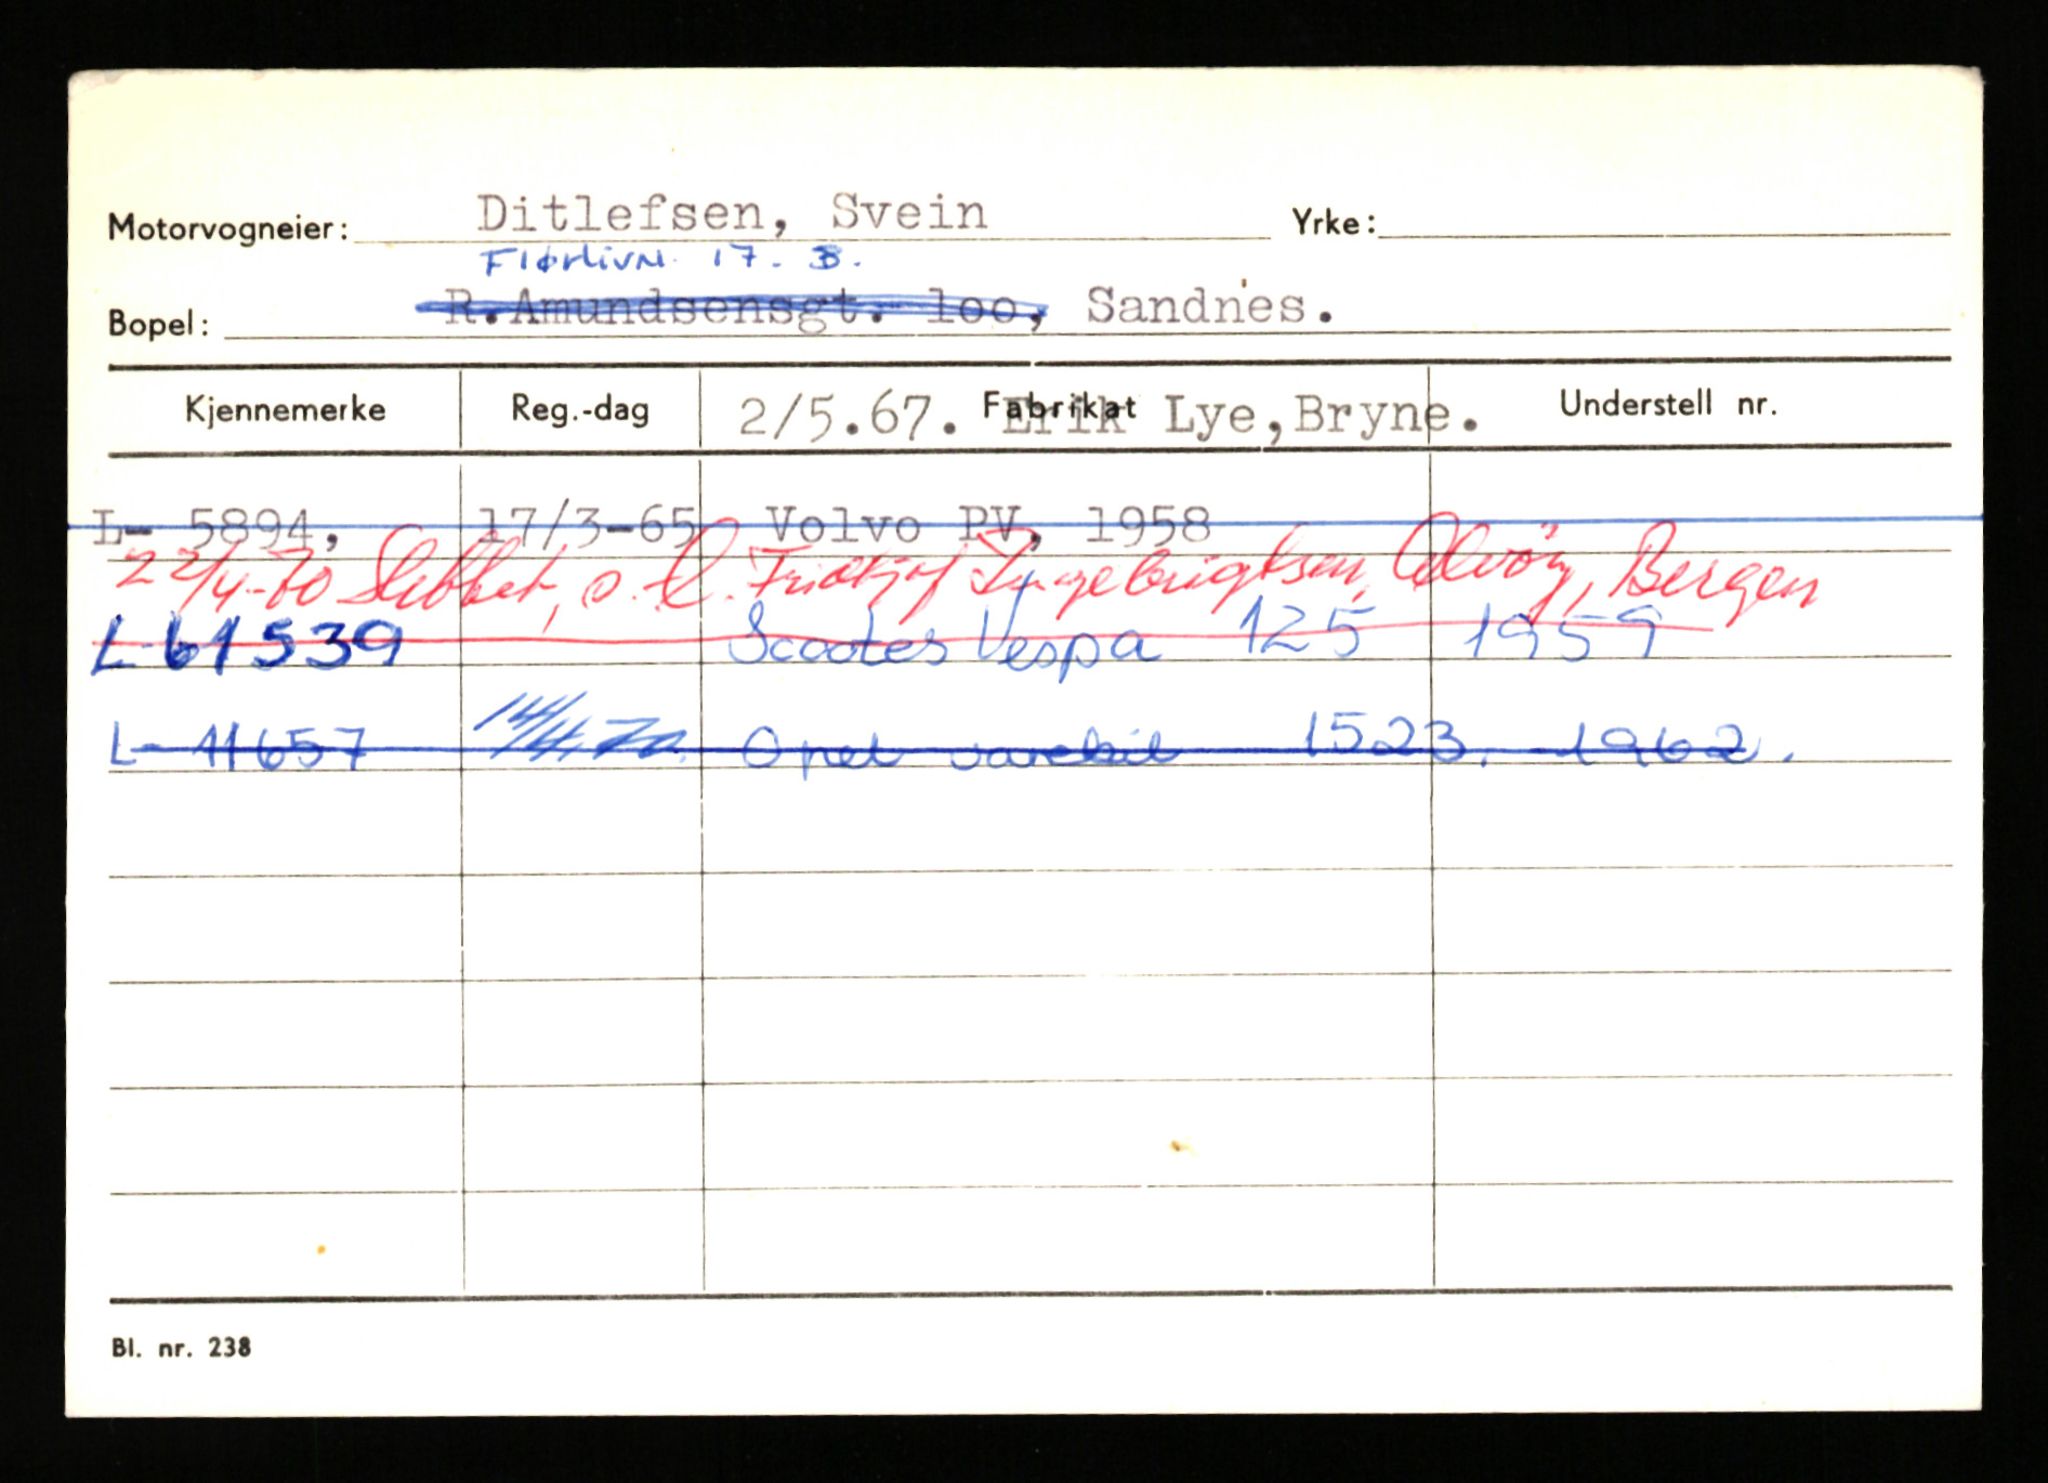 Motorvogneier: Ditlefsen, Svein Yrke:
17. B.
Bopel: R.Amundsensgt. 100, Sandnes.
Kjennemerke Reg.-dag Fabrikat Understell nr.
2/5.67. Erik Lye, Bryne.
L- 5894, 17/3-65 Volvo PV, 1958
22/4-70 Slettet, s. e. Fridtjof Ingebrigtsen, Alvöy, Bergen
L-61539 Scooter Vespa 125 1959
L- 11657 14/4.70. Opel varebil 1523. 1962.
Bl. nr. 238